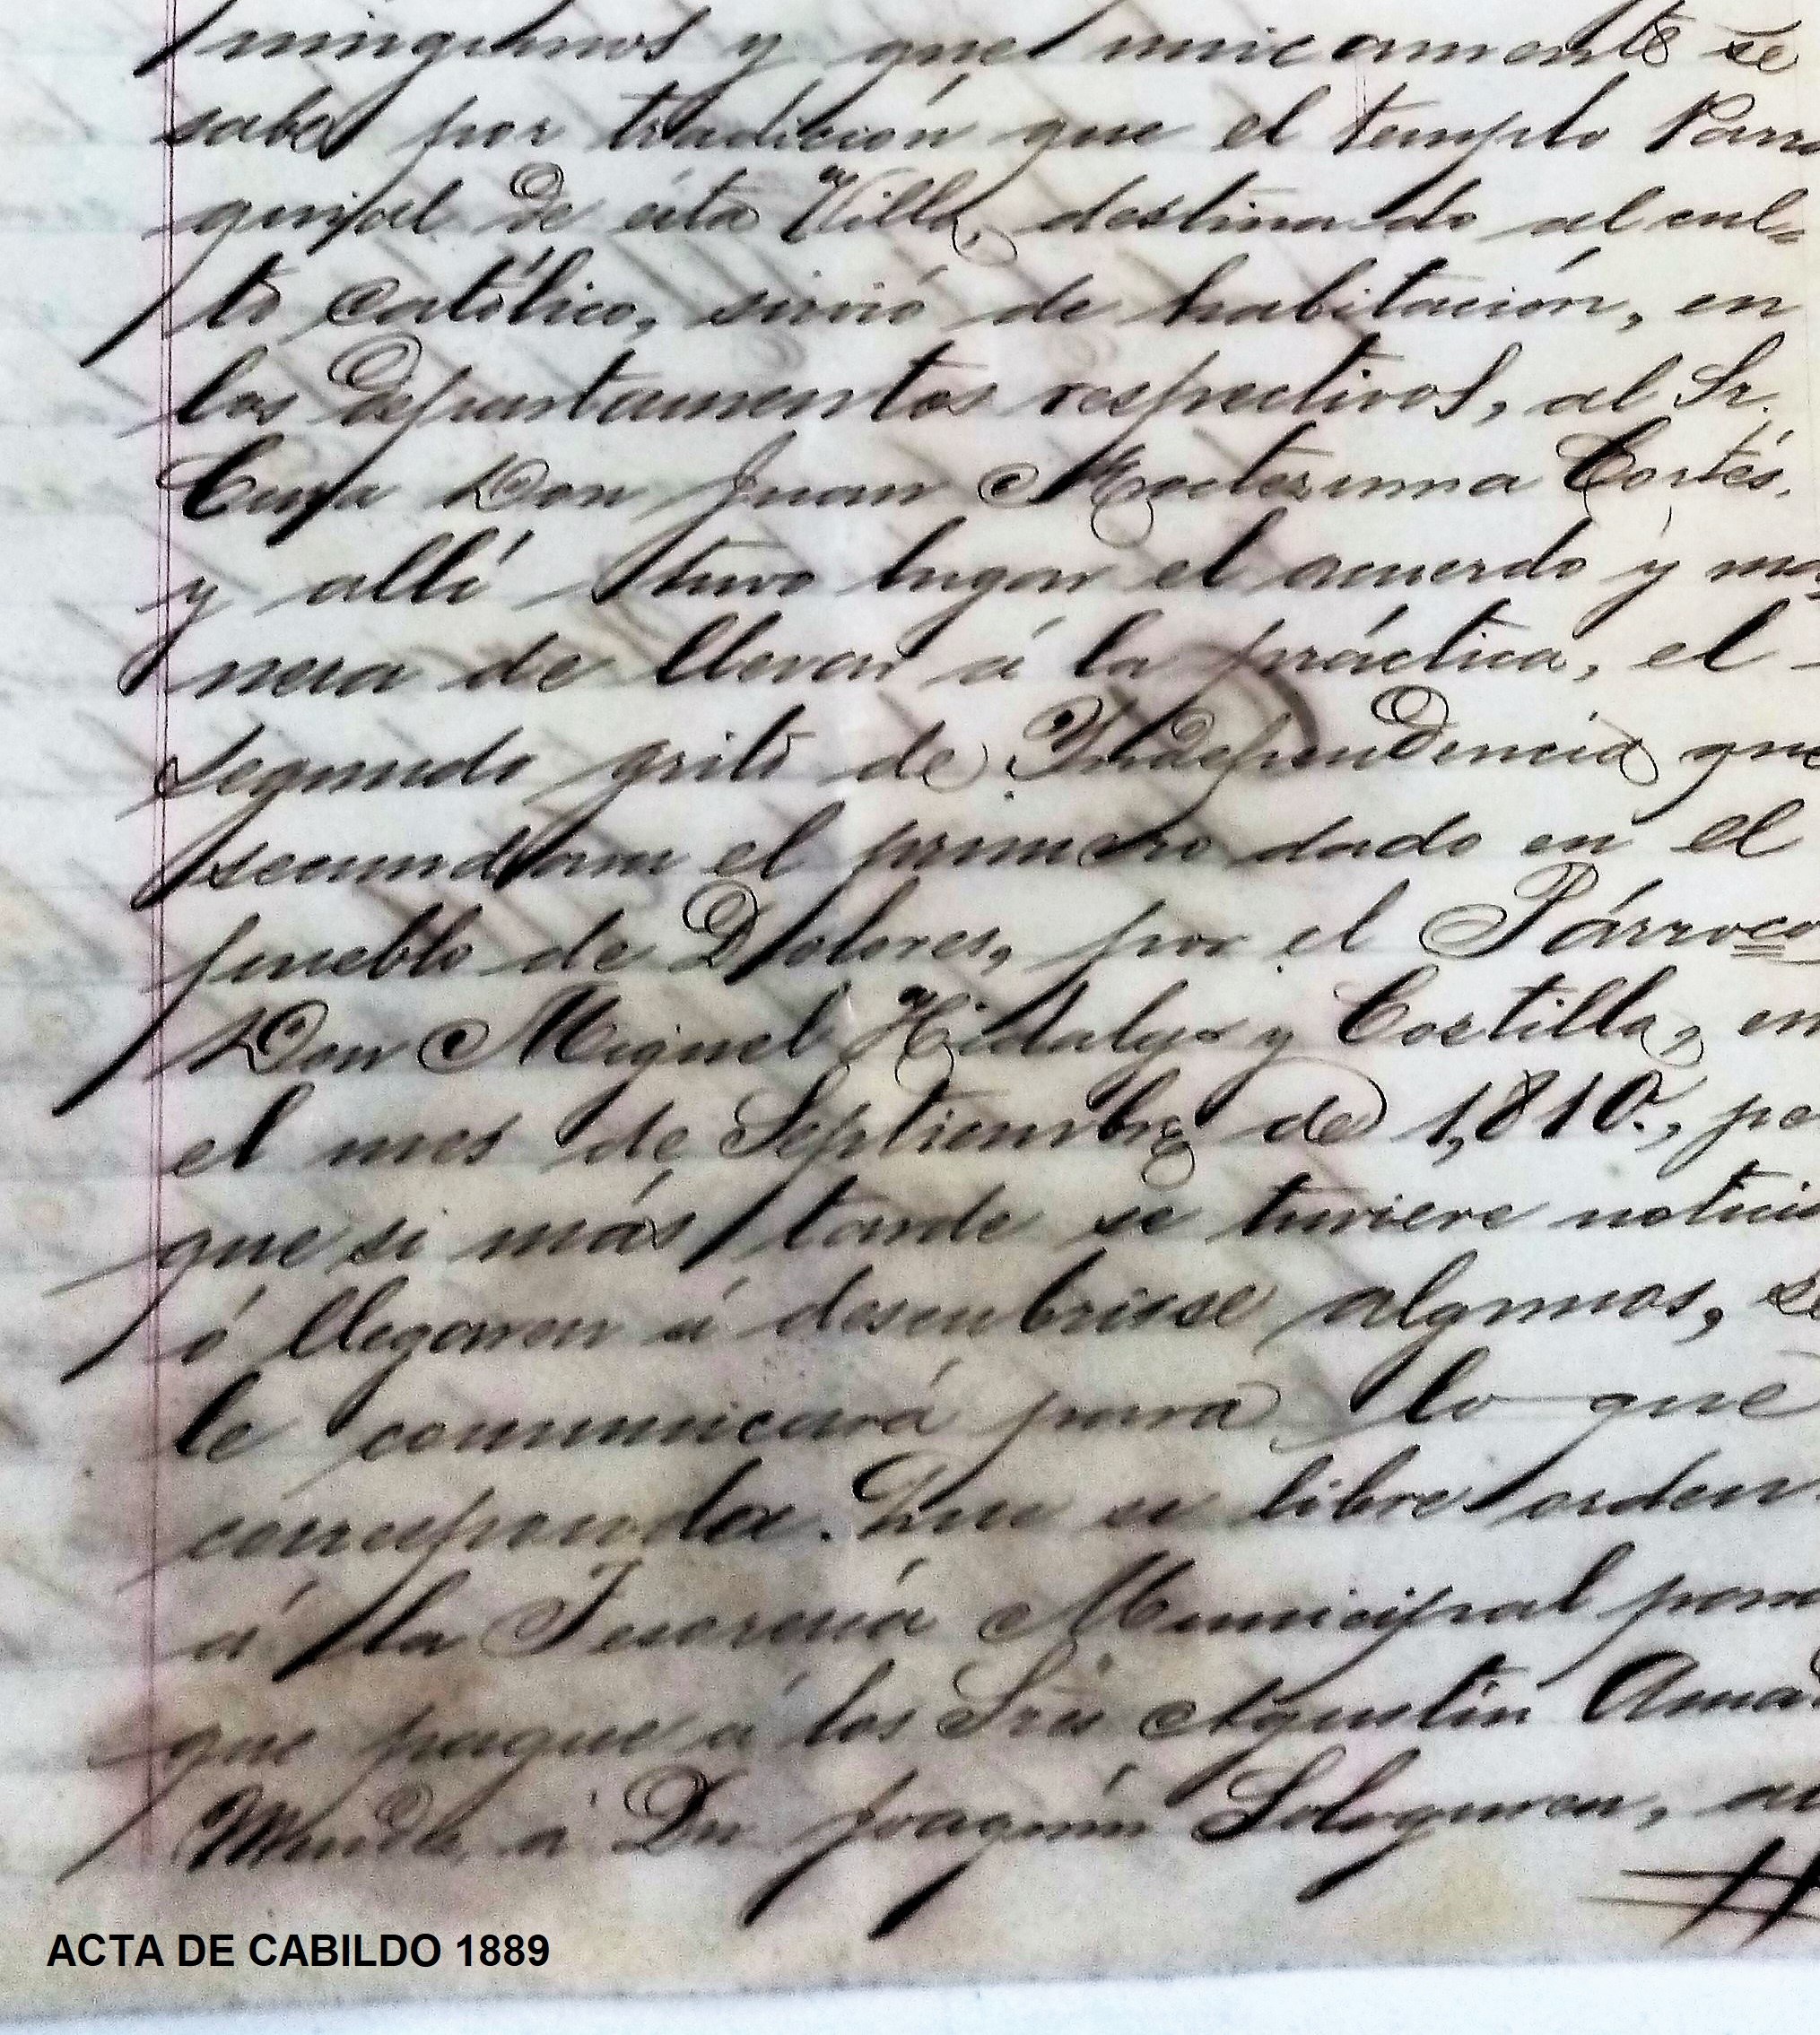 ningunos y que unicamente se
sabe por tradicion que el templo Parro
quial de ésta Villa, destinado al cul=
to Católico, sirvió de habitación, en
los Departamentos respectivos, al Sr.
Cura Don Juan Moctezuma Cortés,
y allí tuvo lugar el acuerdo y ma
nera de llevar á la práctica, el -
segundo grito de Independencia que
secundara el primero dado en el
pueblo de Dolores, por el Párroco
Don Miguel Hidalgo y Costilla, en
el mes de Septiembre de 1,810., pe
que si más tarde se tuviere noticia
ó llegaren á descubrirse algunos, se
le comunicará para lo que
corresponda. Que se libre orden
á la Tesorería Municipal para
que pague á los Sres Agustin Ama
á Dn Joaquín Sologuren, al
ACTA DE CABILDO 1889